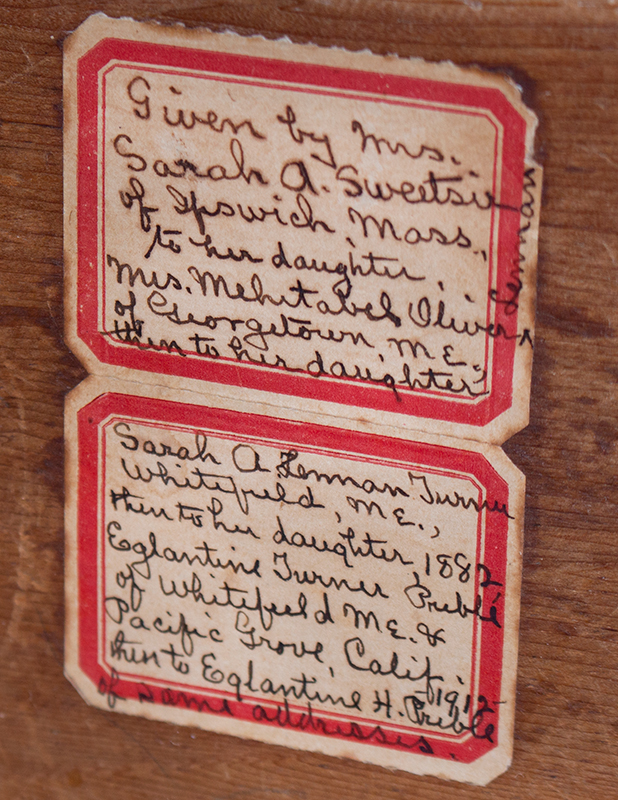 Given by Mrs.
Sarah A. Sweetsir
of Ipswich, Mass.,
to her daughter,
Mrs. Mehitabel Oliver ^ Lennan
of Georgetown, ME.,
then to her daughter
Sarah A Lennan Turner
Whitefield, ME.,
then to her daughter, 1882
Eglantine Turner Preble
of Whitefield ME. &
Pacific Grove, Calif.,
then to Eglantine H. Preble 1912
of same addresses.